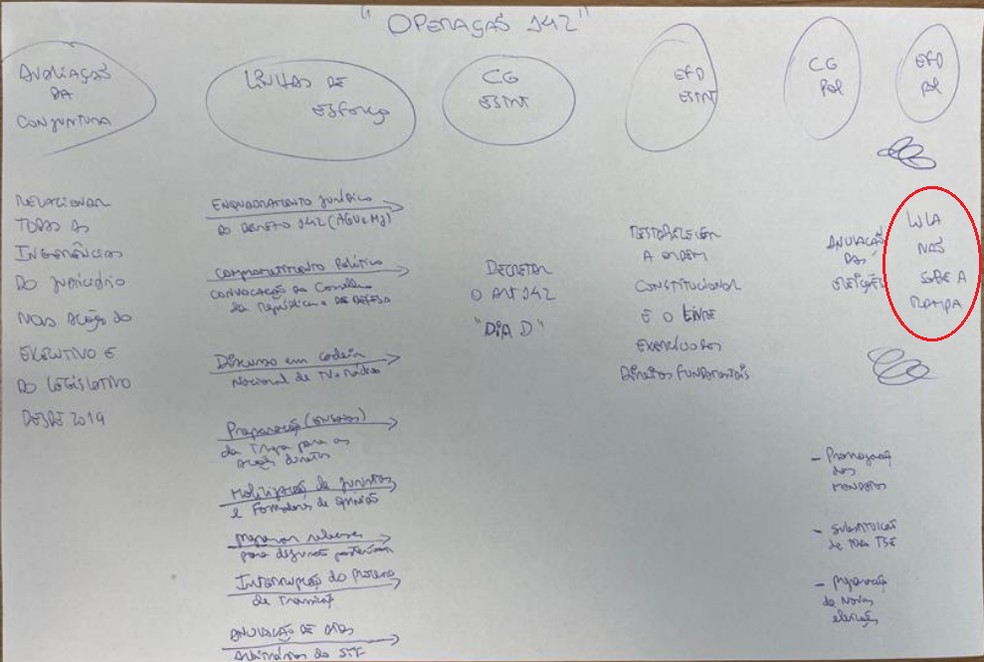 "OPERAÇÃO 142"
AVALIAÇÃO
DA
CONJUNTURA
LINHAS DE
ESFORÇO
CG
ESTNT
EFD
ESTNT
CG
POL
EFD
POL
RELACIONAR
TODAS AS
INTERFERÊNCIAS
DO JUDICIÁRIO
NAS AÇÕES DO
EXECUTIVO E
DO LEGISLATIVO
DESDE 2019
ENQUADRAMENTO JURÍDICO
DO DECRETO 142 (AGU e MJ)
COMPROMETIMENTO POLÍTICO
CONVOCAÇÃO do Conselho
da República e DE DEFESA
DISCURSO em cadeia
Nacional de TV e rádio
Preparação
da Tropa para as
ações diretas
Mobilização de juristas
e Formadores de opinião
preparar
para
Interrupção do Processo
de Transição
ANULAÇÃO DE ATOS
Arbitrários do STF
DECRETAR
O ART 142
"DIA D"
RESTABELECER
A ORDEM
CONSTITUCIONAL
E O LIVRE
EXERCÍCIO DOS
DIREITOS FUNDAMENTAIS
ANULAÇÃO
DAS
ELEIÇÕES
- Prorrogação
dos
MANDATOS
- SUBSTITUIÇÃO
de TODO TSE
- Preparação
de Novas
eleições
LULA
NÃO
SOBE A
RAMPA